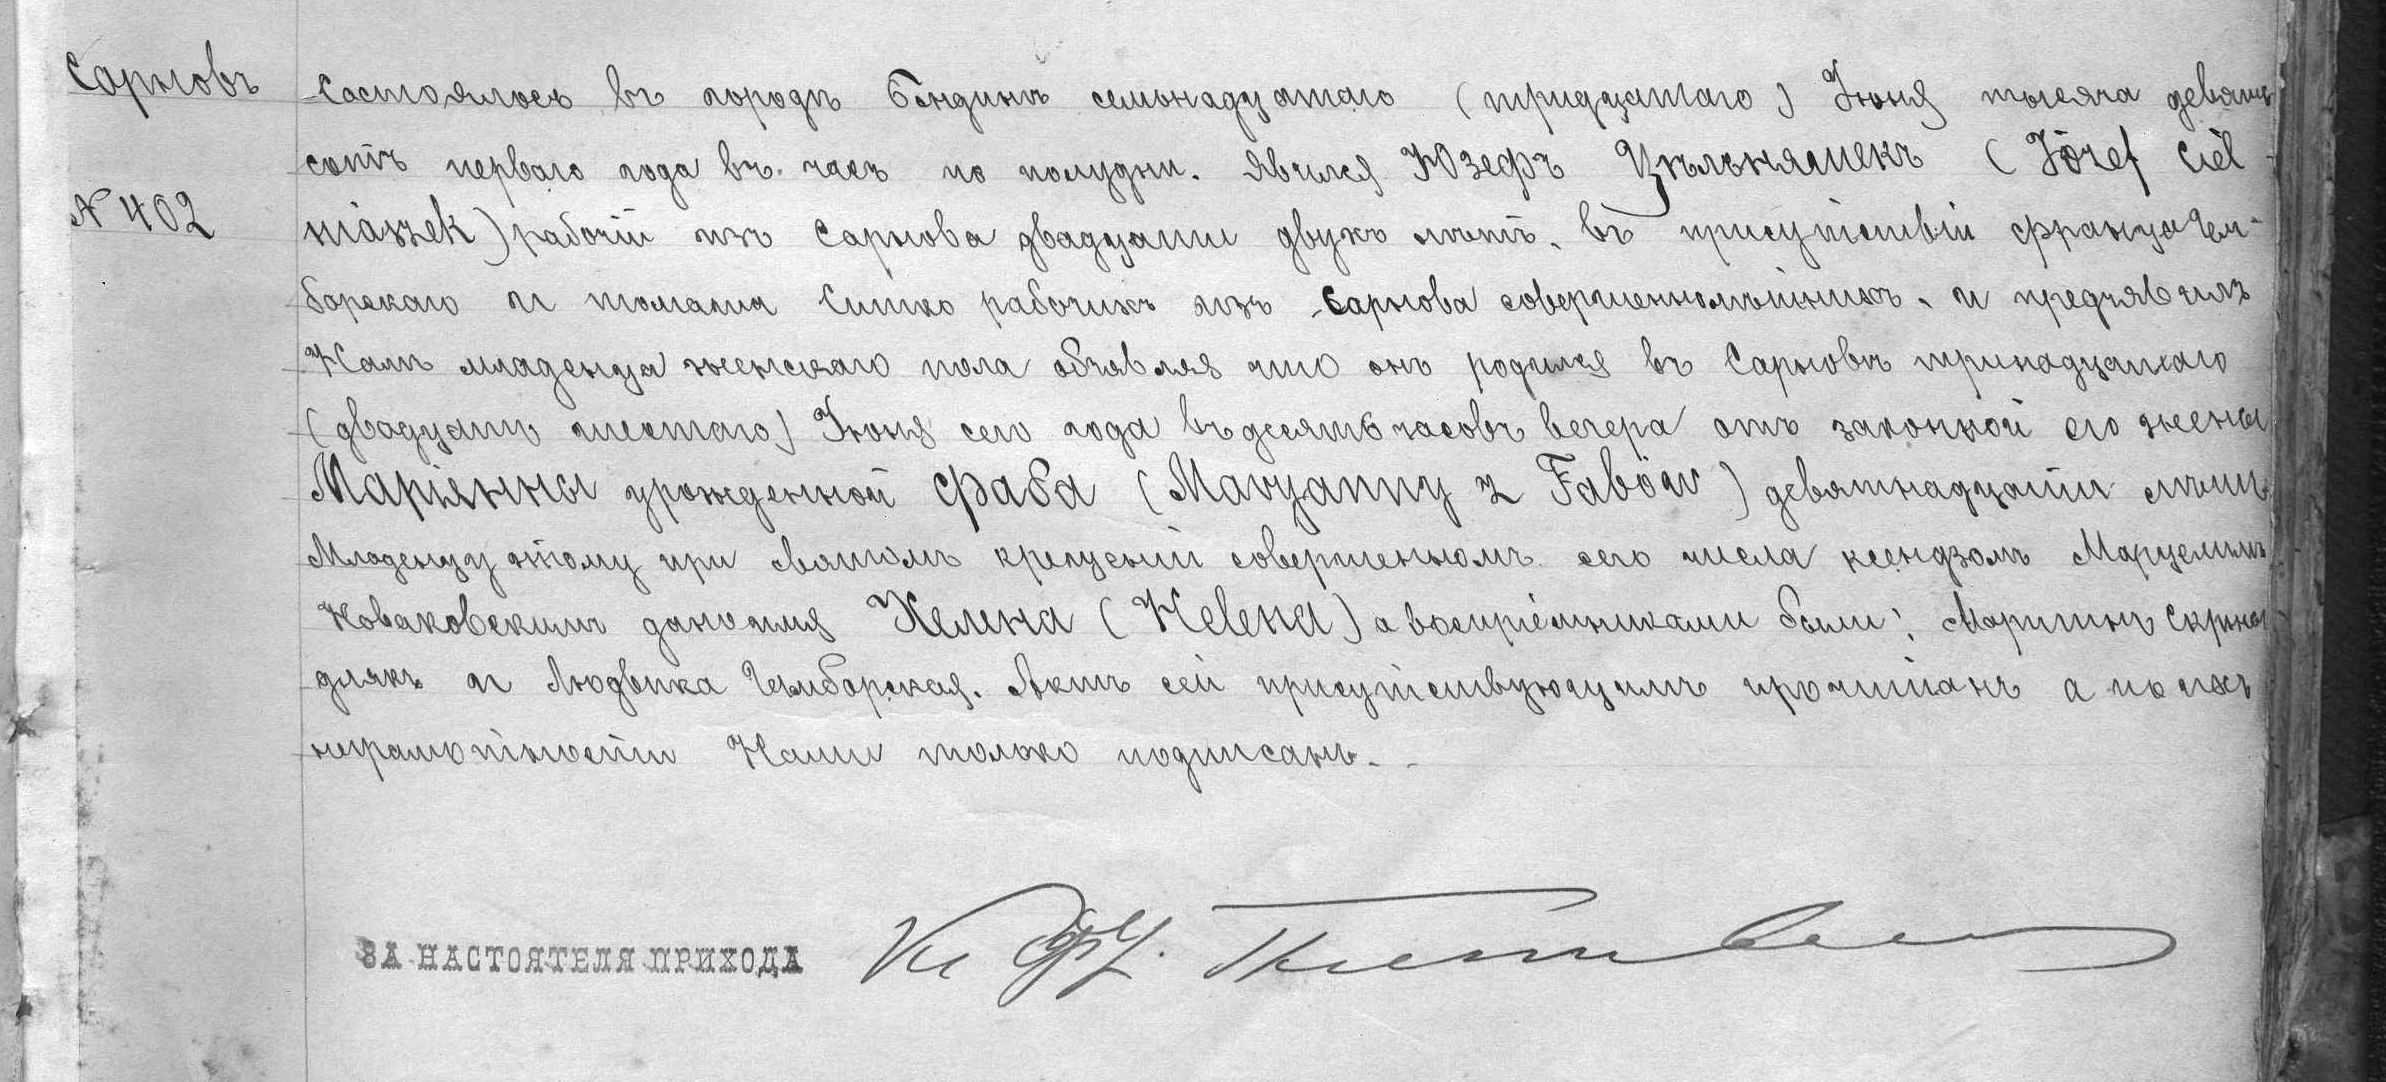 Сарновъ
№ 402
Состоялось въ городѣ Бендинѣ семьнадцатаго (тридцатаго) Іюня тысяча девять
сотъ перваго года въ часъ по полудни. Явился Юзефъ Цѣльняшекъ (Józef Ciel-
niaszek) рабочій изъ Сарнова двадцати двухъ лѣтъ, въ присутствіи Франца Чем-
борскаго и Томаша Ситко рабочихъ изъ Сарнова совершеннолѣтнихъ, и предъявилъ
Намъ младенца женскаго пола объявляя что онъ родился въ Сарновѣ тринадцатаго
(двадцать шестаго) Іюня сего года въ десять часовъ вечера отъ законной его жены
Маріянны урожденной Фаба (Maryanny z Fabów) девятнадцати лѣтъ
Младенцу этому при святомъ крещеніи совершенномъ сего числа ксендзомъ Марцелимъ
Новаковскимъ дано имя Хелена (Helena) а воспріемниками были: Мартинъ Скрины
длякъ и Людвика Чемборская. Актъ сей присутствующимъ прочитанъ а по ихъ
неграмотности Нами только подписанъ.
ЗА НАСТОЯТЕЛЯ ПРИХОДА